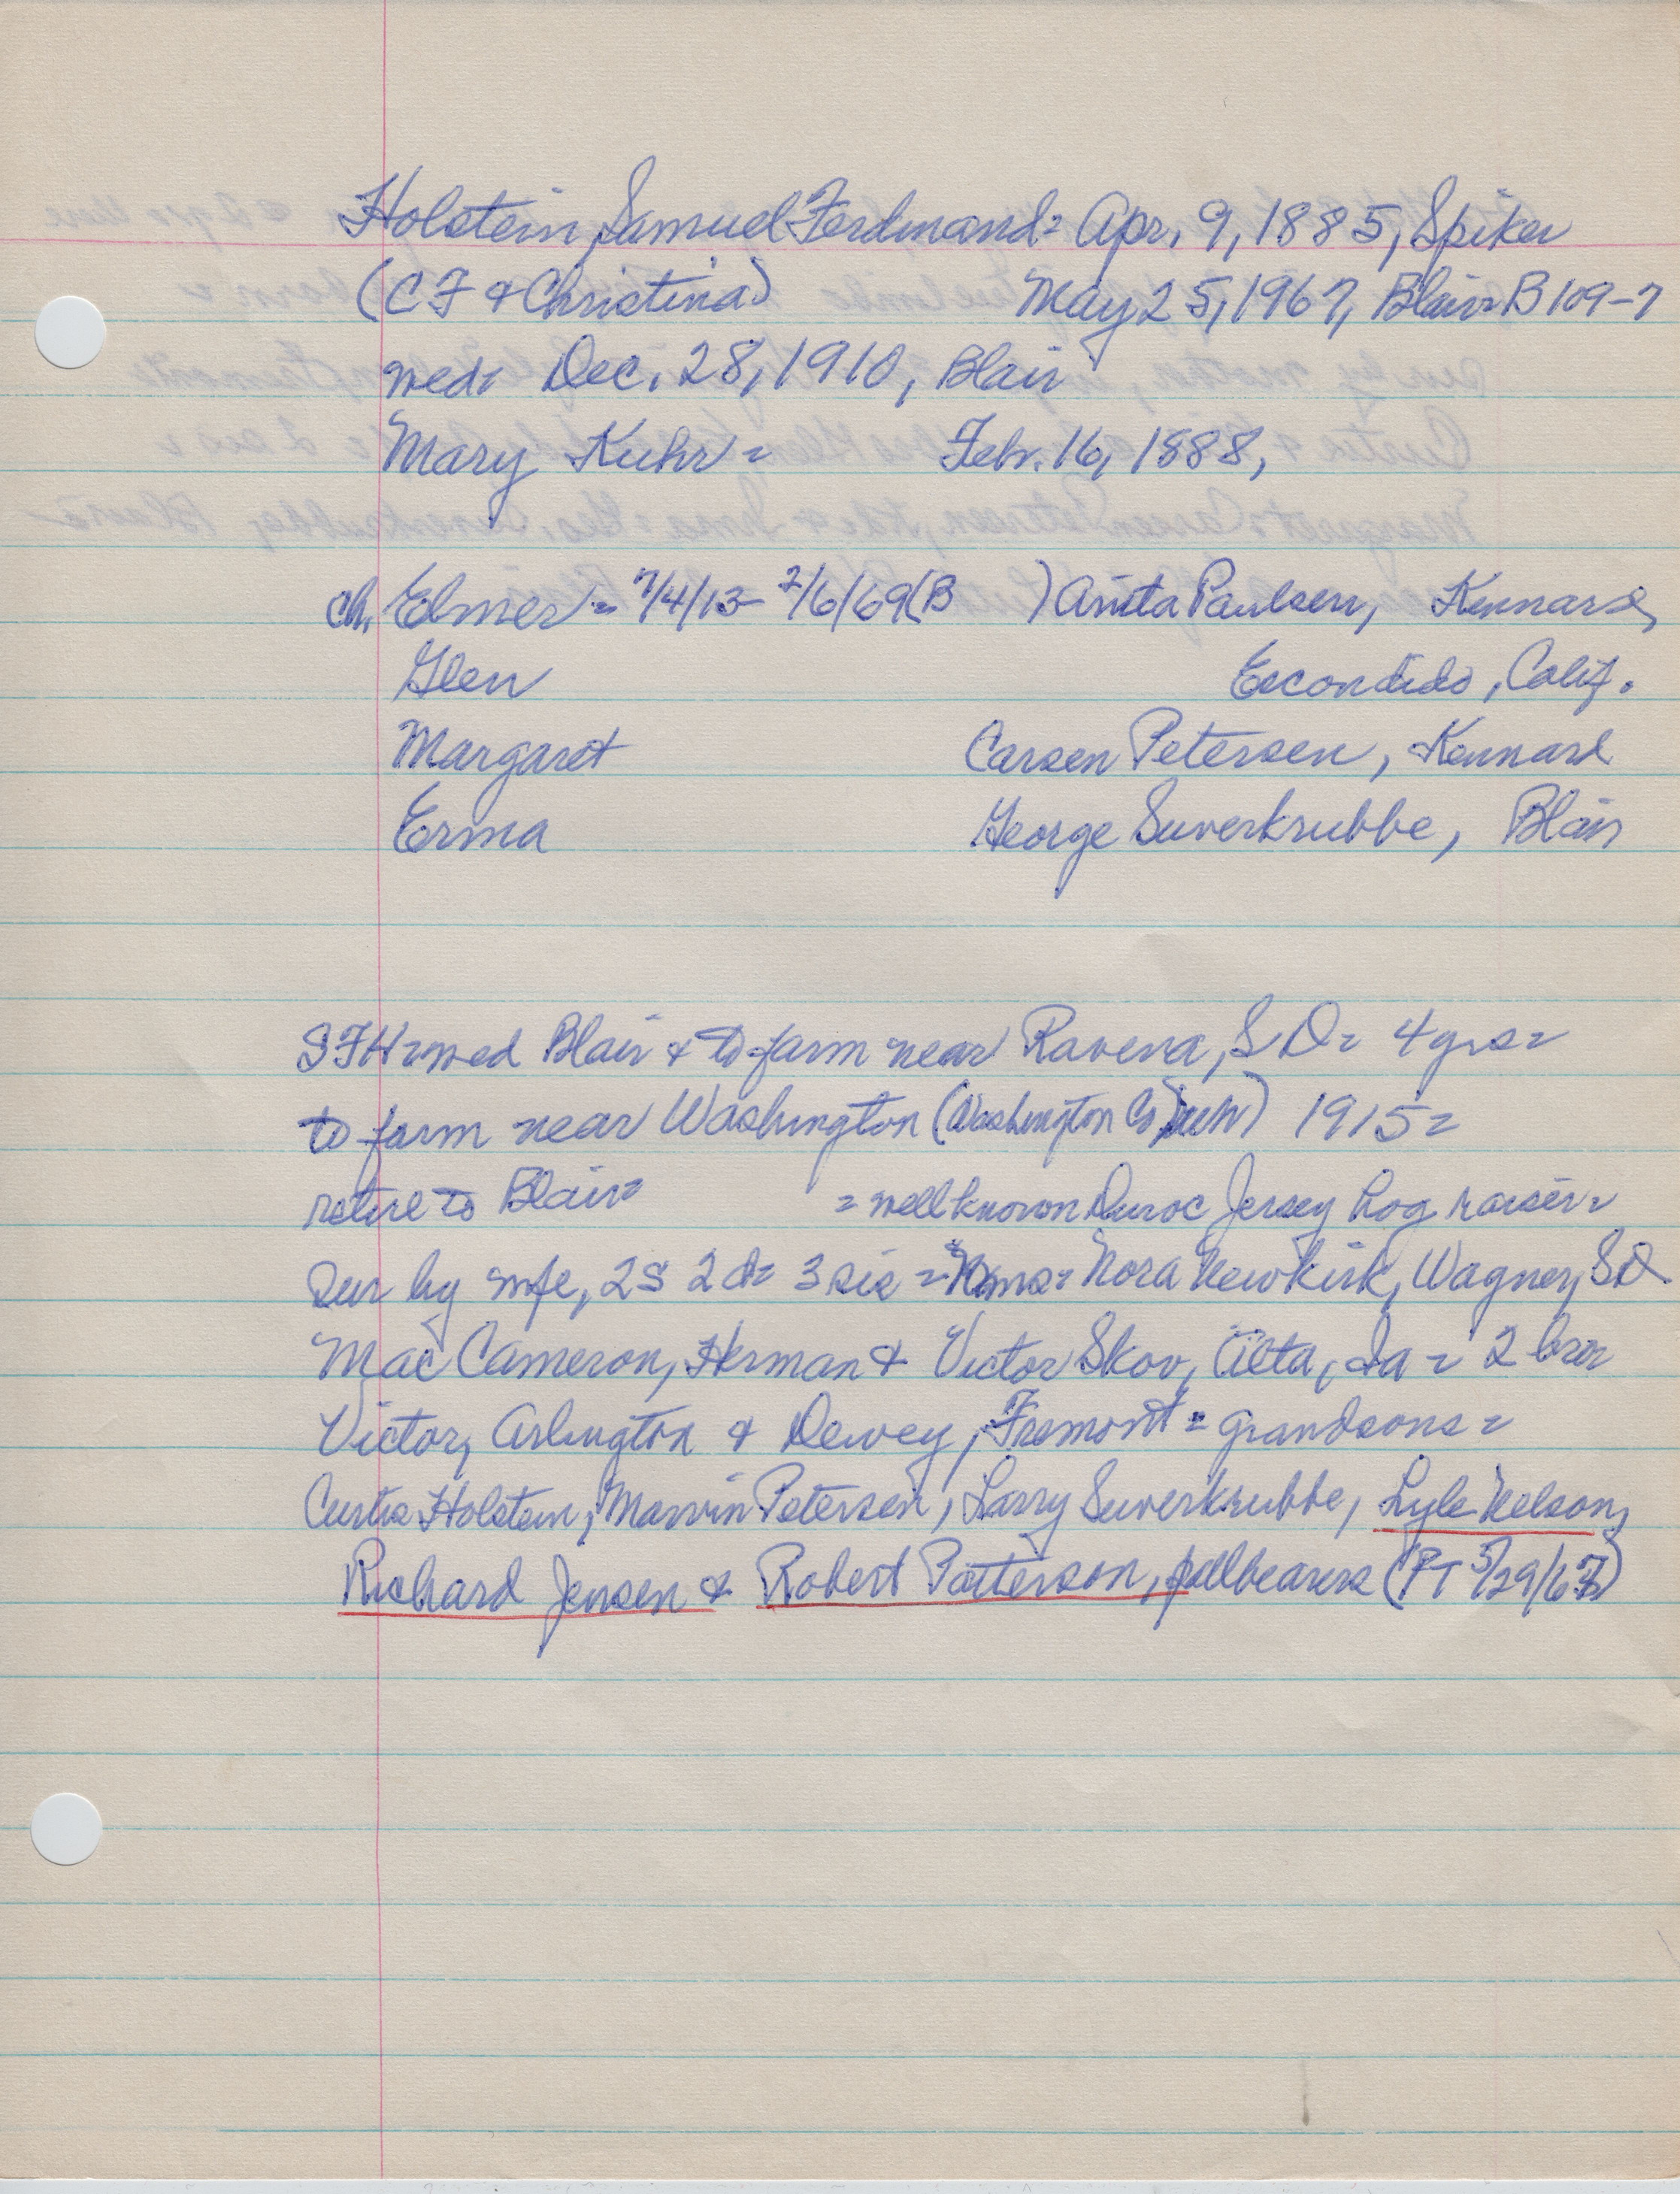 Holstein, Samuel Ferdinand= Apr. 9, 1885, Spiker
(CF & Christina) May 25, 1967, Blair= B 109-7
wed= Dec. 28, 1910, Blair
Mary Kuhr= Feb. 16, 1888,
ch. Elmer= 7/4/13- 2/6/69 (B ) Anita Paulsen, Kennard,
Glen Escondido, Calif.
Margaret Carsen Petersen, Kennard
Erma George Suverkrubbe, Blair
SFH= wed Blair & to farm near Ravena, SD= 4 yrs=
to farm near Washington (Washington Co) 1915=
retire to Blair= = well known Duroc Jersey hog raiser=
Sur by wife, 2s 2d= 3 sis = Nora Newkirk, Wagner, SD
Mac Cameron, Herman & Victor Skov, Alta, Ia = 2 bros
Victor, Arlington & Dewey, Fremont = grandsons=
Curtis Holstein, Marvin Petersen, Larry Suverkrubbe, Lyle Nelson,
Richard Jensen & Robert Patterson, pallbearers (PT 5/29/67)